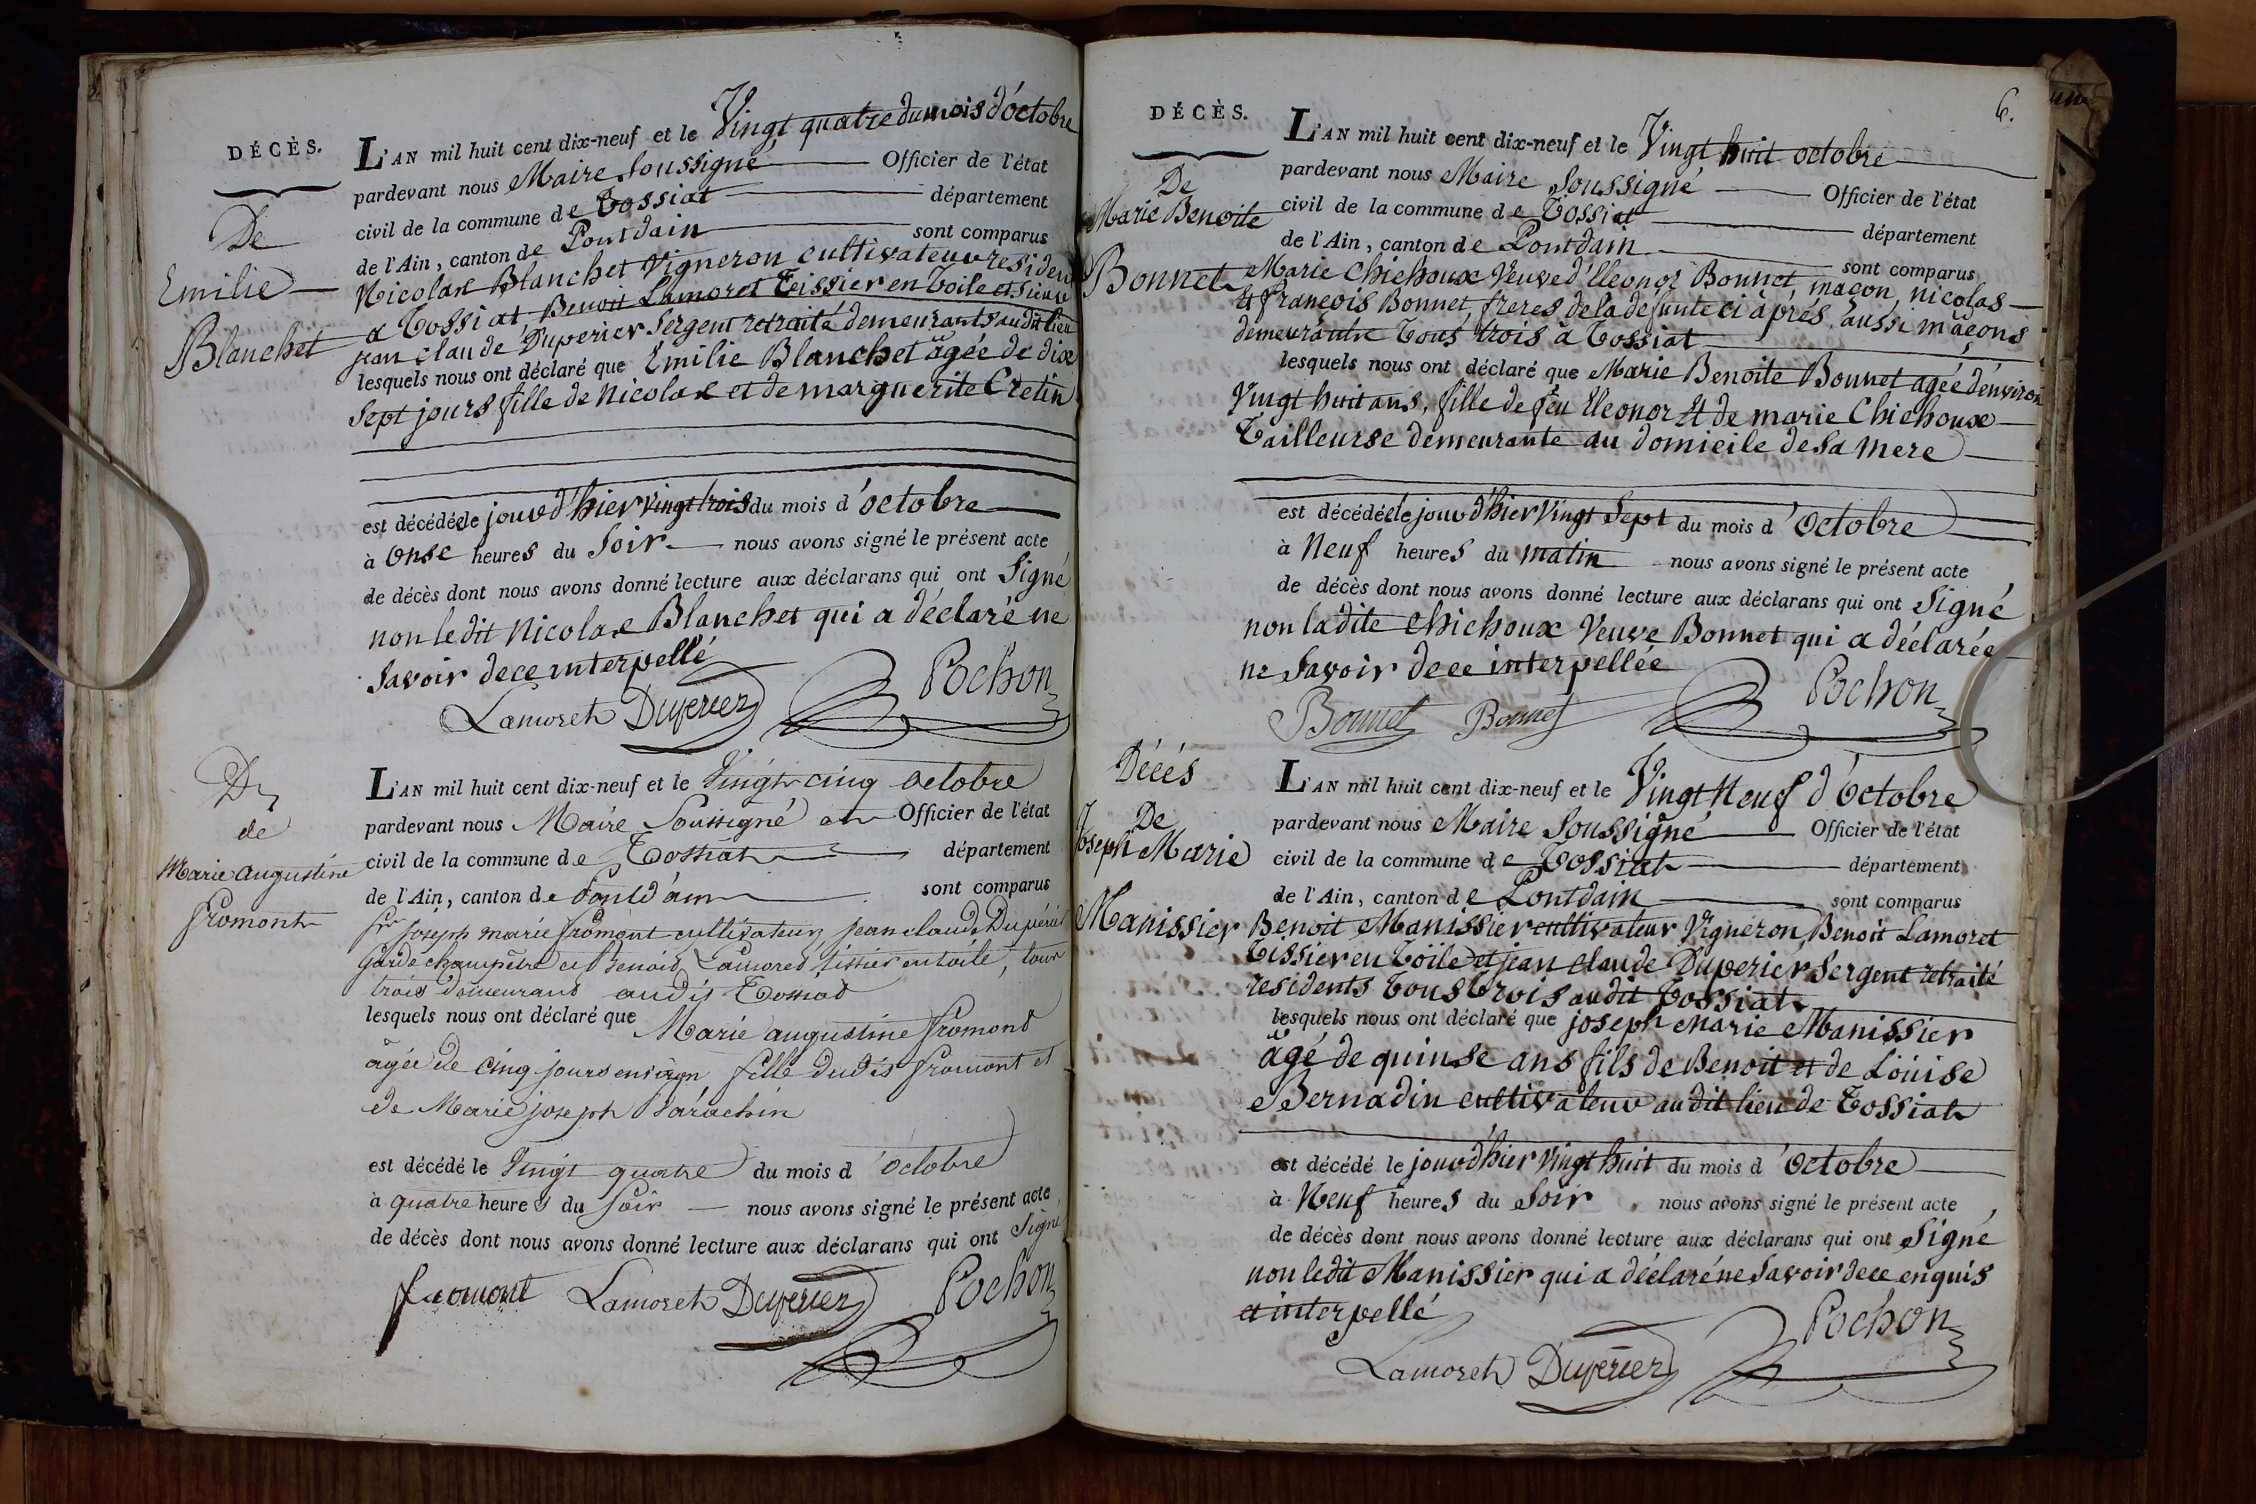 DÉCÈS.
De
Emilie
Blanchet
L'AN mil huit cent dix-neuf et le Vingt quatre du mois d'octobre
pardevant nous Maire Soussigné Officier de l'état
civil de la commune de Tossiat département
de l'Ain, canton de Pontdain sont comparus
Nicolas Blanchet Vigneron cultivateur residen
a Tossiat Benoit Lamoret Teissier en Toile et sieur
jean claude Duperier Sergent retraité demeurants audit lieu
lesquels nous ont déclaré que Émilie Blanchet âgée de dix
Sept jours fille de Nicolas et de marguerite Cretin
est décédée le jour d'hier vingt trois du mois d'octobre
à Onse heures du Soir nous avons signé le présent acte
de décès dont nous avons donné lecture aux déclarans qui ont Signé
non ledit Nicolas Blanchet qui a déclaré ne
Savoir de ce interpellé
Lamoret Duperier Pochon
De
de
Marie augustine
fromont
L'AN mil huit cent dix-neuf et le Vingt cinq octobre
pardevant nous Maire Soussigné Officier de l'état
civil de la commune de Tossiat département
de l'Ain, canton de Pontd'ain sont comparus
Sr Joseph marie fromont cultivateur, jean claude Duperier
Garde champêtre et Benoit Lamoret tissier en toile, tous
trois demeurant audit Tossiat
lesquels nous ont déclaré que Marie augustine fromont
âgée de cinq jours environ fille dudit fromont et
de Marie joseph
est décédé le Vingt quatre du mois d'octobre
à quatre heures du Soir nous avons signé le présent acte
de décès dont nous avons donné lecture aux déclarans qui ont Signé
fromont Lamoret Duperier Pochon
6.
DÉCÈS.
De
Marie Benoite
Bonnet
L'AN mil huit cent dix-neuf et le Vingt huit octobre
pardevant nous Maire Soussigné Officier de l'état
civil de la commune de Tossiat département
de l'Ain, canton de Pontdain sont comparus
Marie Chichoux Veuve d'Eleonor Bonnet maçon, nicolas
et françois Bonnet, freres de la defunte ci après aussi maçons
demeurants Tous trois à Tossiat
lesquels nous ont déclaré que Marie Benoite Bonnet agée d'environ
Vingt huit ans, fille de feu Eleonor et de marie Chichoux
Tailleurse demeurante au domicile de Sa mere
est décédée le jour d'hier Vingt Sept du mois d'Octobre
à Neuf heures du matin nous avons signé le présent acte
de décès dont nous avons donné lecture aux déclarans qui ont Signé
non ladite Chichoux Veuve Bonnet qui a déclarée
ne Savoir de ce interpellée
Bonnet Bonnet Pochon
Décés
De
Joseph Marie
Manissier
L'AN mil huit cent dix-neuf et le Vingt Neuf d'Octobre
pardevant nous Maire Soussigné Officier de l'état
civil de la commune de Tossiat département
de l'Ain, canton de Pontdain sont comparus
Benoit Manissier cultivateur Vigneron, Benoit Lamoret
Tissier en Toile et jean claude Duperier Sergent retraité
résidents Tous trois audit Tossiat
lesquels nous ont déclaré que joseph Marie Manissier
âgé de quinse ans fils de Benoit et de Louise
Bernadin cultivateur audit lieu de Tossiat
est décédé le jour d'hier Vingt huit du mois d'Octobre
à Neuf heures du Soir nous avons signé le présent acte
de décès dont nous avons donné lecture aux déclarans qui ont Signé
non ledit Manissier qui a déclaré ne Savoir de ce enquis
et interpellé
Lamoret Duperier Pochon